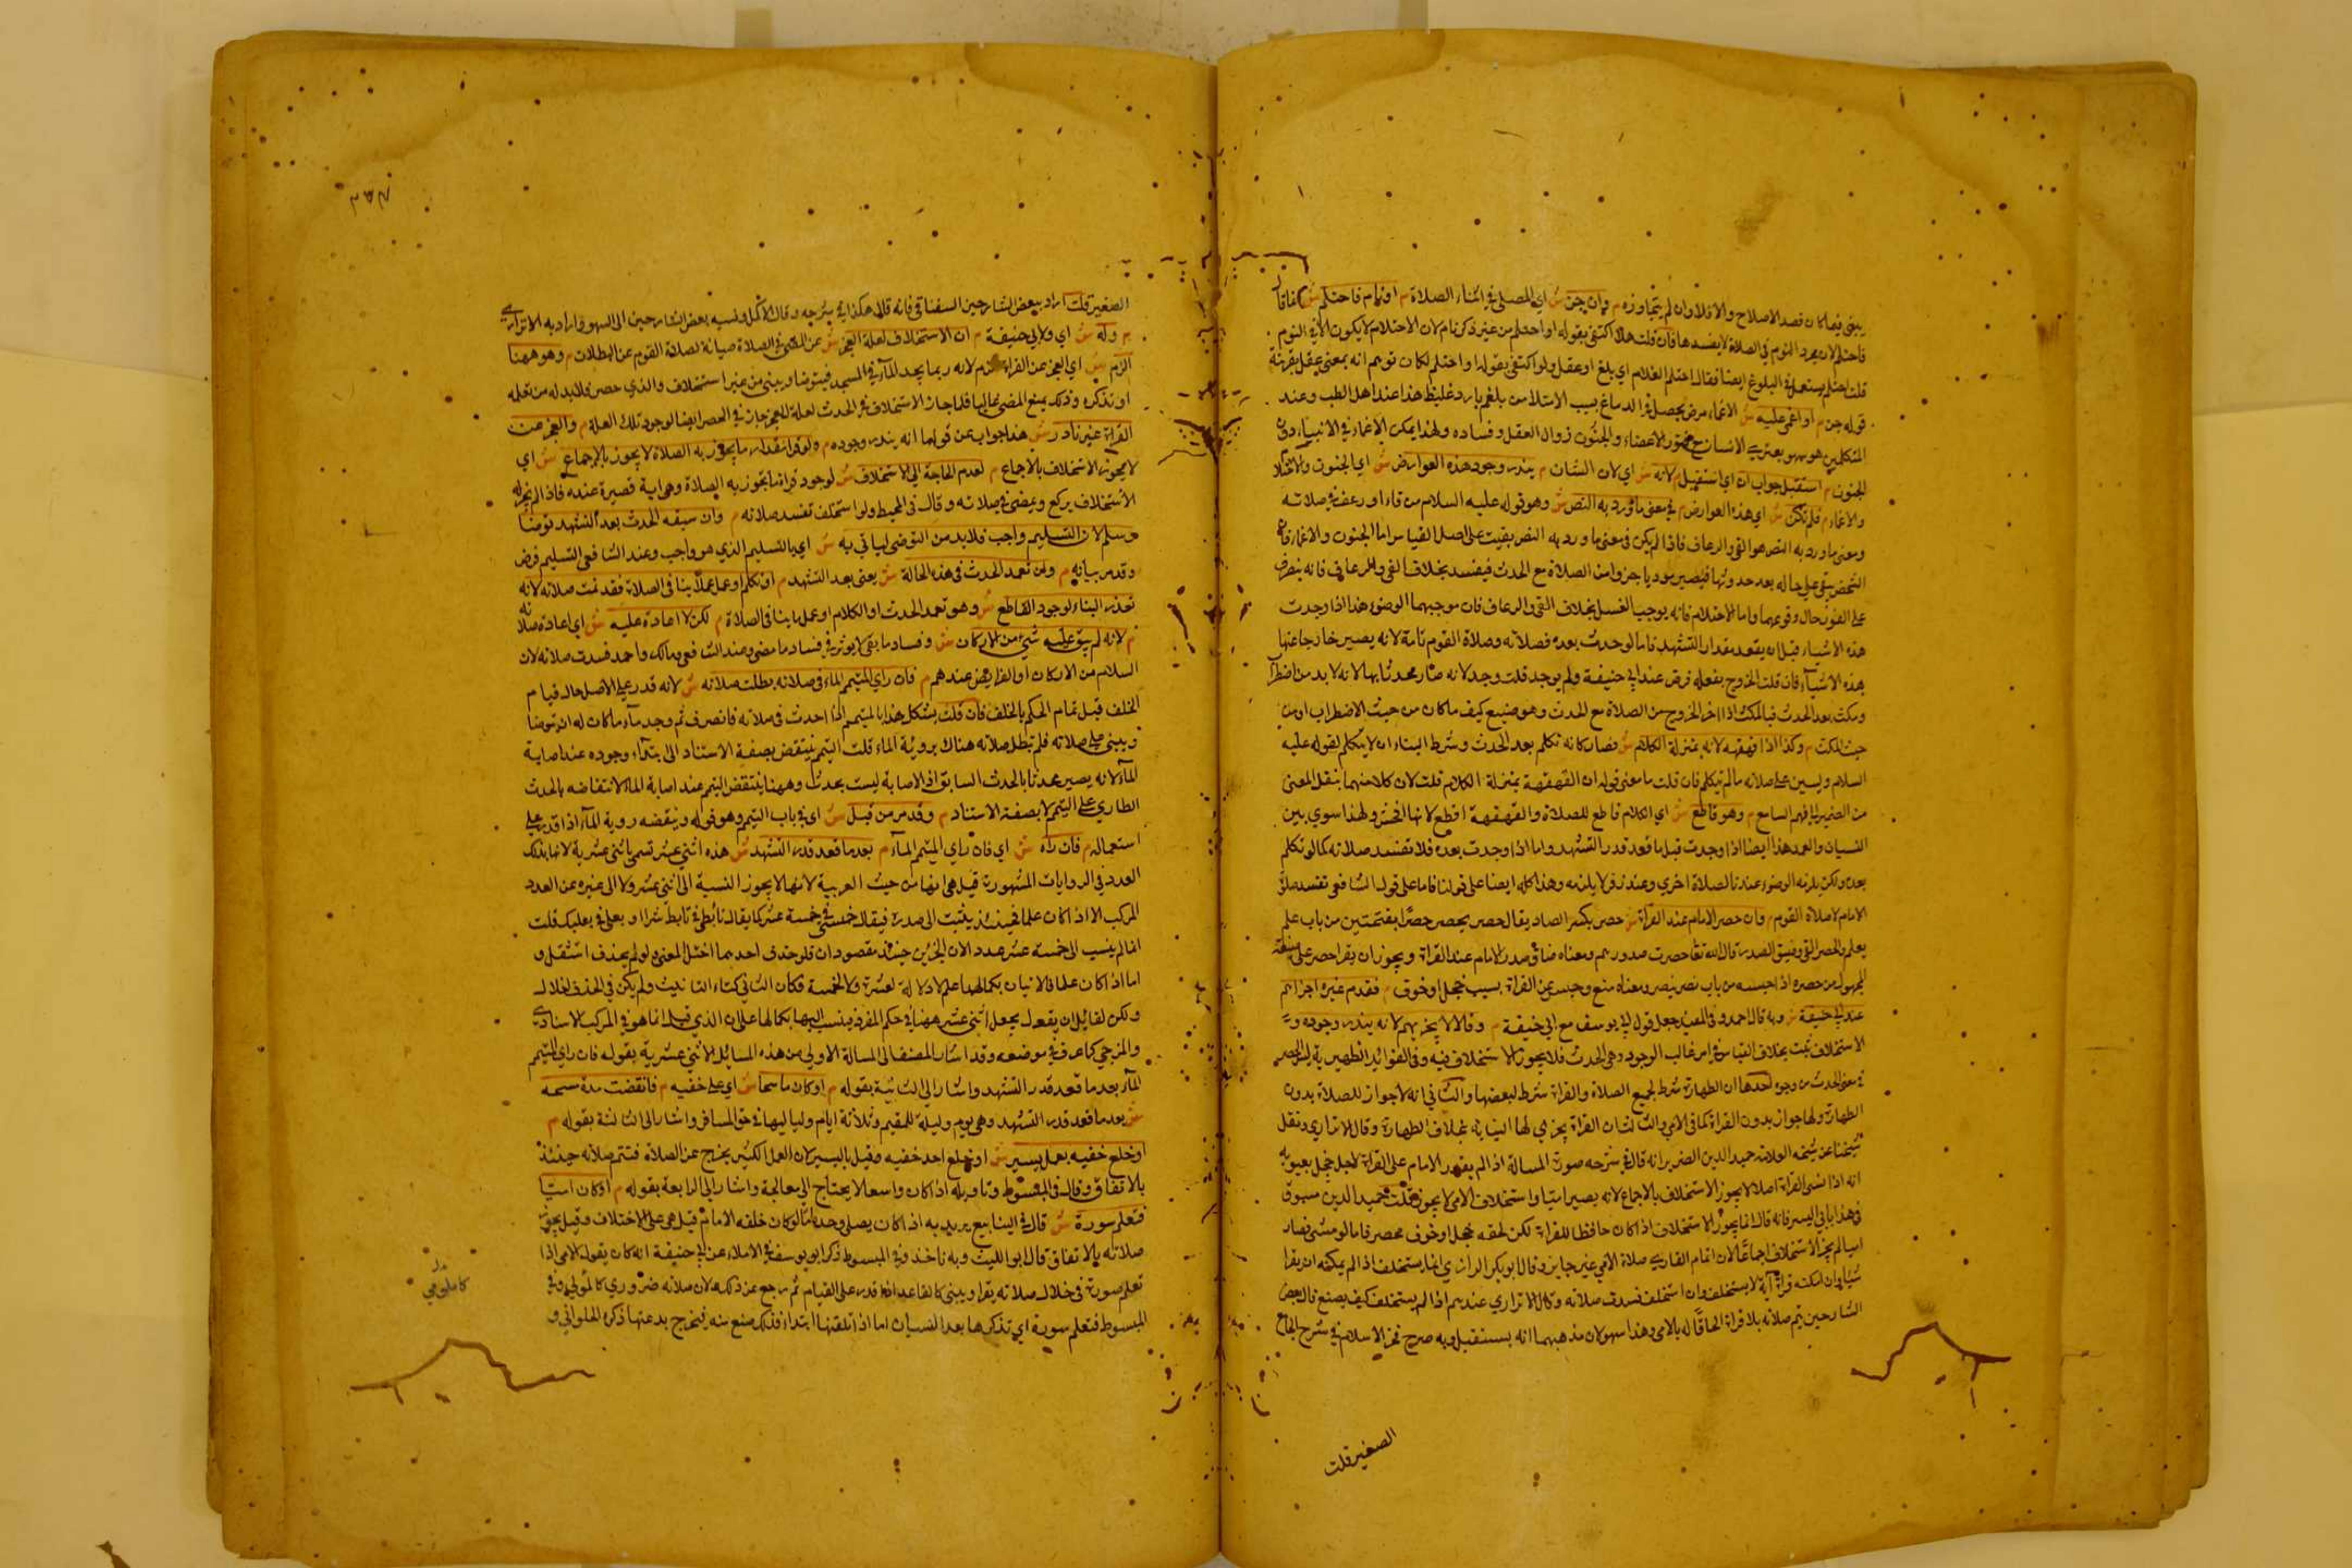 يبنى فيما كان قصد الاصلاح والا فلا وان لم يتجاوزه م وان جن ش اي المصلي في اثناء الصلاة م او نام فاحتلم ش انما قال
فاحتلم لان مجرد النوم في الصلاة لا يفسدها فان قلت هلا اكتفى بقوله او احتلم من غير ذكر نام لان الاحتلام لا يكون الا في النوم
قلت احتلم يستعمل في البلوغ ايضا فقال احتلم الغلام اي بلغ او عقل ولو اكتفى بقوله او احتلم لكان توهم انه بمعنى عقل بقرينة
قوله جن م او اغمي عليه ش الاغماء مرض يحصل في الدماغ بسبب الامتلاء من بلغم بارد غليظ هذا عند اهل الطب وعند
المتكلمين هو سهو يعتري الانسان مع فتور الاعضاء والجنون زوال العقل وفساده ولهذا يمكن الاغماء في الانبياء دون
الجنون م استقبل جواب ان اي استقبل م لانه ش اي لان الشان م يندر وجود هذه العوارض ش اي الجنون والاحتلام
والاغماء م فلم تكن ش اي هذه العوارض م في معنى ما ورد به النص ش وهو قوله عليه السلام من قاء او رعف في صلاته
ومعنى ما ورد به النص هو القي والرعاف فاذا لم يكن في معنى ما ورد به النص بقيت على اصل القياس اما الجنون والاغماء فان
الشخص يبقى على حاله بعد حدوثها فيصير مؤديا جزوا من الصلاة مع الحدث فيفسد بخلاف القي والرعاف فانه ينصرف
على الفور حال وقوعهما واما الاحتلام فانه يوجب الغسل بخلاف القي والرعاف فان موجبهما الوضوء هذا اذا وجدت
هذه الاشياء قبل ان يقعد مقدار التشهد فاما لو حدث بعده فصلاته وصلاة القوم تامة لانه يصير خارجا عنها
بهذه الاشياء فان قلت الخروج بفعله فرض عند ابي حنيفة ولم يوجد قلت وجد لانه صار محدثا بها لانه لا بد من اضطراب
ومكث بعد الحدث فبالمكث اذا اخر الخروج من الصلاة مع الحدث وهو صنيع كيف ما كان من حيث الاضطراب او من
حيث المكث م وكذا اذا قهقهه لانه بمنزلة الكلام ش فصار كانه تكلم بعد الحدث وشرط البناء ان لا يتكلم لقوله عليه
السلام وليبن على صلاته ما لم يتكلم فان قلت ما معنى قوله ان القهقهة بمنزلة الكلام قلت لان كلا منهما ينقل المعنى
من الضمير الى فهم السامع م وهو قاطع ش اي الكلام قاطع للصلاة والقهقهة اقطع لانها افحش ولهذا سوي بين
النسيان والعمد هذا ايضا اذا وجدت قبل ما قعد قدر التشهد واما اذا وجدت بعده فلا تفسد صلاته كما لو تكلم
بعده ولكن يلزمه الوضوء عندنا لصلاة اخري وعند زفر لا يلزمه وهذا كله ايضا على قولنا فاما على قول الشافعي تفسد صلاة
الامام لا صلاة القوم م وان حصر الامام عند القراة ش حصر بكسر الصاد يقال حصر يحصر حصرا بفتحتين من باب علم
يعلم والحصر العي وضيق الصدر قال الله تعالى حصرت صدورهم ومعناه ضاق صدر الامام عند القراة ويجوز ان يقرا حصر على صيغة
المجهول من حصره اذا حبسه من باب نصر ينصر ومعناه منع وحبس عن القراة بسبب خجل او خوف م فقدم غيره اجزاهم
عند ابي حنيفة ش وبه قال احمد وفي المفيد جعل قول ابي يوسف مع ابي حنيفة م وقالا لا يجزيهم لانه يندر وجوده
الاستخلاف ثبت بخلاف القياس في امر غالب الوجود وهو الحدث فلا يجوز الاستخلاف فيه وفي الفوائد الظهيرية ليس الحصر
في معنى الحدث من وجوه احدها ان الطهارة شرط لجميع الصلاة والقراة شرط لبعضها والثاني انه لا جواز للصلاة بدون
الطهارة ولها جواز بدون القراة كما في الامي والثالث ان القراة يجزي لها النيابة بخلاف الطهارة وقال الاتراري ونقل
شيخنا عن شيخه العلامة حميد الدين الضرير انه قال في شرحه صورة المسالة اذا لم يقدر الامام على القراة لاجل خجل يعتريه
انه اذا نسي القراة اصلا لا يجوز الاستخلاف بالاجماع لانه يصير اميا واستخلاف الامي لا يجوز قلت حميد الدين مسبوق
في هذا بابي اليسر فانه قال انما يجوز الاستخلاف اذا كان حافظا للقراة لكن لحقه خجل او خوف فحصر فاما لو نسي فصار
اميا لم يجز الاستخلاف اجماعا لان اتمام القاري صلاة الامي غير جايز وقال ابو بكر الرازي انما يستخلف اذا لم يمكنه ان يقرا
شيا وان امكنه قراة آية لا يستخلف وان استخلف فسدت صلاته وقال الاتراري عندهم اذا لم يستخلف كيف يصنع قال بعض
الشارحين يتم صلاته بلا قراة الحاقا له بالامي وهذا سهو لان مذهبهما انه يستقبل وبه صرح فخر الاسلام في شرح الجامع
الصغير قلت
الصغير قلت اراد ببعض الشارحين السغناقي فانه قال هكذا في شرحه وقال الاكمل ونسبه بعض الشارحين الى السهو واراد به الاتراري
م وله ش اي ولابي حنيفة م ان الاستخلاف لعلة العجز ش عن المضي في الصلاة صيانة لصلاة القوم عن البطلان م وهو ههنا
الزم ش اي العجز عن القراة الزم لانه ربما يجد الماء في المسجد فيتوضا ويبني من غير استخلاف والذي حصر فلا بد له من تعلم
او تذكره وذلك يمنع المضي غالبا فلما جاز الاستخلاف في الحدث لعلة العجز جاز في الحصر ايضا لوجود تلك العلة م والعجز عن
القراة غير نادر ش هذا جواب عن قولهما انه يندر وجوده م ولو قرا مقدار ما يجوز به الصلاة لا يجوز بالاجماع ش اي
لا يجوز الاستخلاف بالاجماع م لعدم الحاجة الى الاستخلاف ش لوجود قراة ما تجوز به الصلاة وهو اية قصيرة عنده فاذا لم يجز له
الاستخلاف يركع ويمضي في صلاته وقال في المحيط ولو استخلف تفسد صلاته م وان سبقه الحدث بعد التشهد توضا
وسلم لان التسليم واجب فلا بد من التوضي لياتي به ش اي بالتسليم الذي هو واجب وعند الشافعي التسليم فرض
وقد مر بيانه م وان تعمد الحدث في هذه الحالة ش يعني بعد التشهد م او تكلم او عمل عملا ينافي الصلاة فقد تمت صلاته لانه
تعذر البناء لوجود القاطع ش وهو تعمد الحدث او الكلام او عمل ما ينافي الصلاة م لكن لا اعادة عليه ش اي اعادة صلاته
م لانه لم يبق عليه شيء من الاركان ش وفساد ما بقي لا يوثر في فساد ما مضى وعند الشافعي ومالك واحمد فسدت صلاته لان
السلام من الاركان او الفرايض عندهم م فان راي المتيمم الماء في صلاته بطلت صلاته ش لانه قدر على الاصل حال قيام
الخلف قبل تمام الحكم بالخلف فان قلت يشكل هذا بالمتيمم اذا احدث في صلاته فانصرف ثم وجد ماء ما كان له ان يتوضا
ويبني على صلاته فلم تبطل صلاته هناك بروية الماء قلت التيمم ينتقض بصفة الاستناد الى ابتداء وجوده عند اصابة
الماء لانه يصير محدثا بالحدث السابق اذ الاصابة ليست بحدث وههنا ينتقض التيمم عند اصابة الماء لانتقاضه بالحدث
الطاري على التيمم لا بصفة الاستناد م وقد مر من قبل ش اي في باب التيمم وهو قوله وينقضه روية الماء اذا قدر على
استعماله م فان راه ش اي فان راي المتيمم الماء م بعد ما قعد قدر التشهد ش هذه اثني عشر تسمى باثني عشرية لانها بذلك
العدد في الروايات المشهورة قيل هي انها من حيث العربية لانها لا يجوز النسبة الى اثني عشر ولا الى غيره من العدد
المركب الا اذا كان علما فحينئذ ينسب الى صدره فيقال خمسي في خمسة عشر كما يقال تابطي في تابط شرا او بعلي في بعلبك قلت
انما لم ينسب الى خمسة عشر عدد الان الجزين حينئذ مقصودان فلو حذف احدهما اختل المعنى ولو لم يحذف استثقل و
اما اذا كان علما فالاتيان بكمالها علم لا دلالة لعشرة ولا لخمسة فكان الثاني كتاء التانيث ولم يكن في الحذف اخلال
ولكن لقائل ان يقول يجعل اثني عشر ههنا في حكم المفرد فينسب اليها بكمالها على ان الذي قيل انما هو في المركب الاسنادي
والمزجي كما عرف في موضعه وقد اشار المصنف الى المسالة الاولى من هذه المسائل الاثني عشرية بقوله فان راي المتيمم
الماء بعد ما قعد قدر التشهد واشار الى الثانية بقوله م او كان ماسحا ش اي على خفيه م فانقضت مدة مسحه
ش بعد ما قعد قدر التشهد وهي يوم وليلة للمقيم وثلاثة ايام ولياليها في حق المسافر واشار الى الثالثة بقوله م
او خلع خفيه بعمل يسير ش او خلع احد خفيه وقيل باليسير لان العمل الكثير يخرج عن الصلاة فتتم صلاته حينئذ
بالاتفاق وقال في المبسوط وتاويله اذا كان واسعا لا يحتاج الى معالجة واشار الى الرابعة بقوله م او كان اميا
فتعلم سورة ش قال في الينابيع يريد به اذا كان يصلي وحده اما لو كان خلف الامام قيل هي على الاختلاف وقيل يجوز
صلاته بالاتفاق قال ابو الليث وبه ناخذ وفي المبسوط ذكر ابو يوسف في الاملاء عن ابي حنيفة انه كان يقول الامي اذا
تعلم سورة في خلال صلاته يقرا ويبني كالقاعد اذا قدر على القيام ثم رجع عن ذلك لان صلاته ضروري كالمومي وفي
المبسوط فتعلم سورة اي تذكرها بعد النسيان اما اذا تلقنها ابتداء فذلك صنع منه فيخرج به عنها ذكره الحلواني و